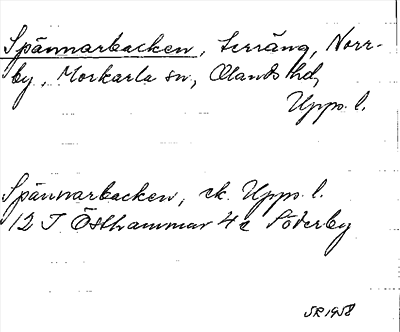 Spännarbacken, terräng, Norr-
by, Morkarla sn, Olands hd,
Upps. l.
Spännarbacken, ek. Upps. l.
12 I Östhammar 4e Söderby
SR 1958